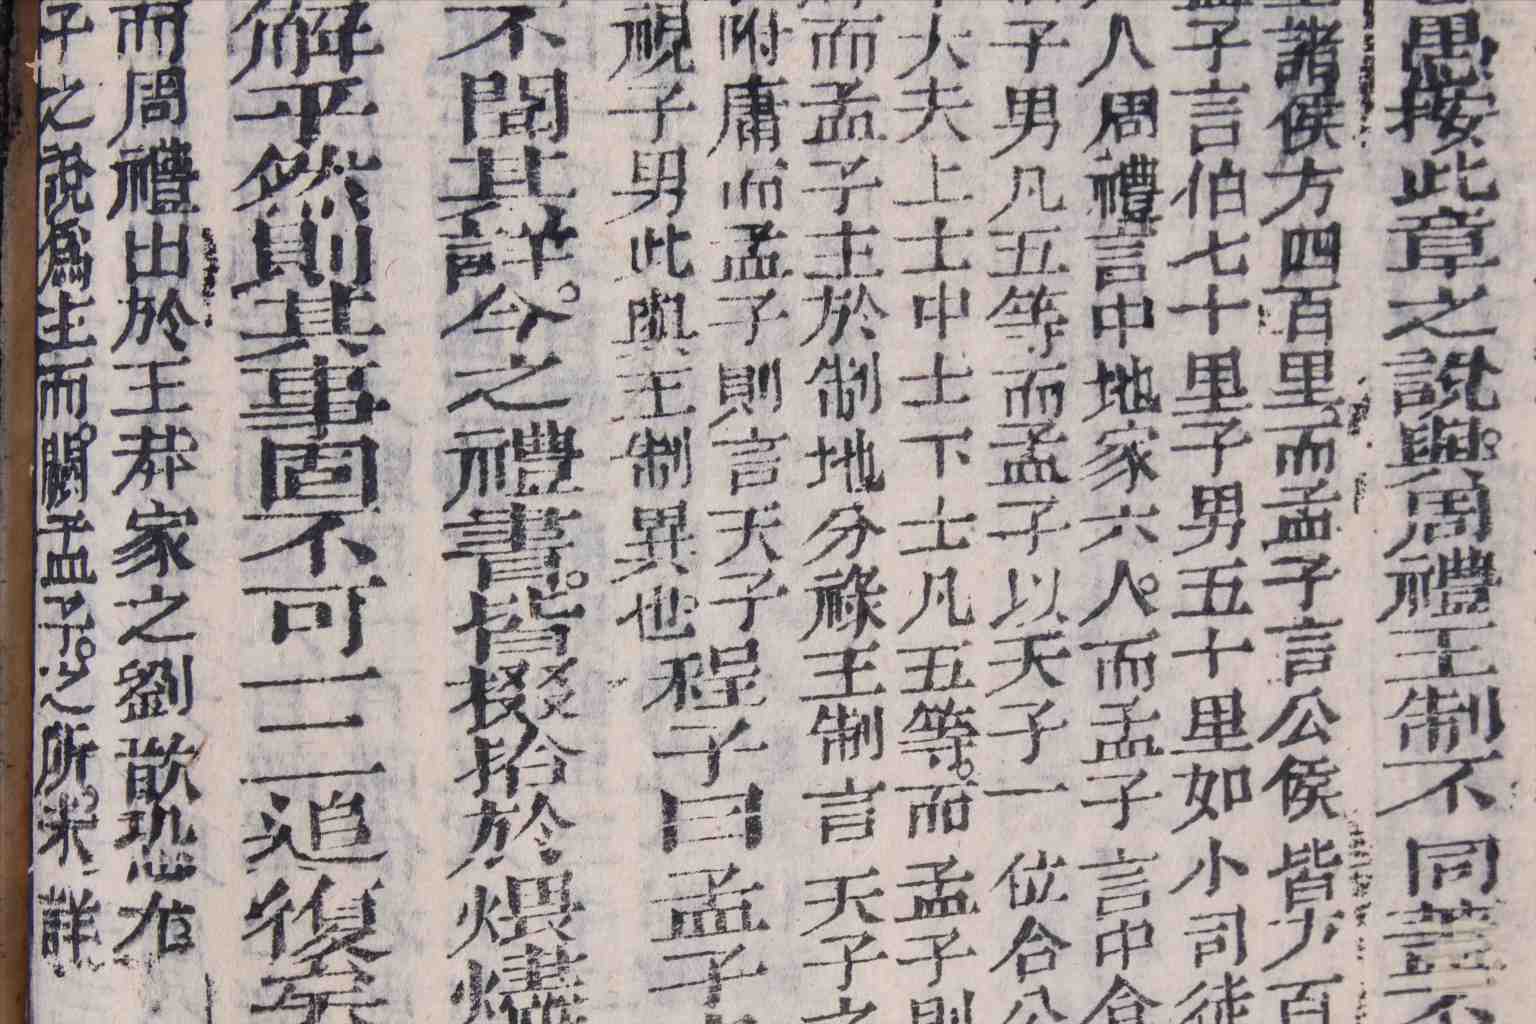 愚按此章之說與周禮王制不同蓋不
諸侯方四百里而孟子言公侯皆方百
孟子言伯七十里子男五十里如小司徒
人周禮言中地家六人而孟子言中食
子男凡五等而孟子以天子一位合公
大夫上士中士下士凡五等而孟子則
而孟子主於制地分祿王制言天子之
附庸而孟子則言天子
視子男此與王制異也程子曰孟子
不聞其詳今之禮書皆掇拾於煨燼
解乎然則其事固不可一二追復矣
而周禮出於王莽家之劉歆恐尤
子之說為主而闕孟子之所未詳